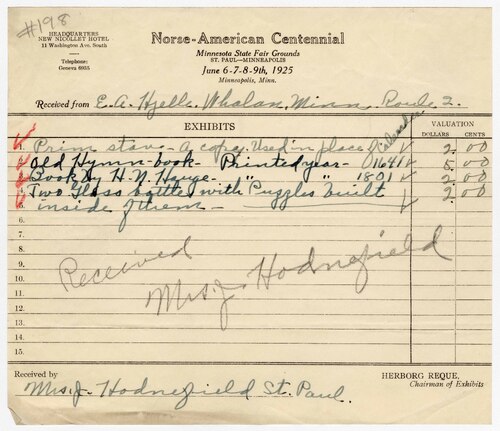 #198
HEADQUARTERS
NEW NICOLLET HOTEL
11 Washington Ave. South
Telephone:
Geneva 6955
Norse-American Centennial
Minnesota State Fair Grounds
ST. PAUL—MINNEAPOLIS
June 6-7-8-9th, 1925
Minneapolis, Minn.
Received from E. A. Hjelle, Whalan, Minn. Route 2.
EXHIBITS
VALUATION
DOLLARS CENTS
Prim stav - A copy. Used in place of calendar 2 00
Old Hymn-book - Printed year - 1641 5 00
Book by H. N. Hauge - " " 1801 2 00
Two Glass bottles with Puzzles built 2 00
5. inside of them -
6.
7.
8.
9.
10.
11.
12.
13.
14.
15.
Received
Mrs. J. Hodnefield
Received by
Mrs. J. Hodnefield St. Paul.
HERBORG REQUE,
Chairman of Exhibits